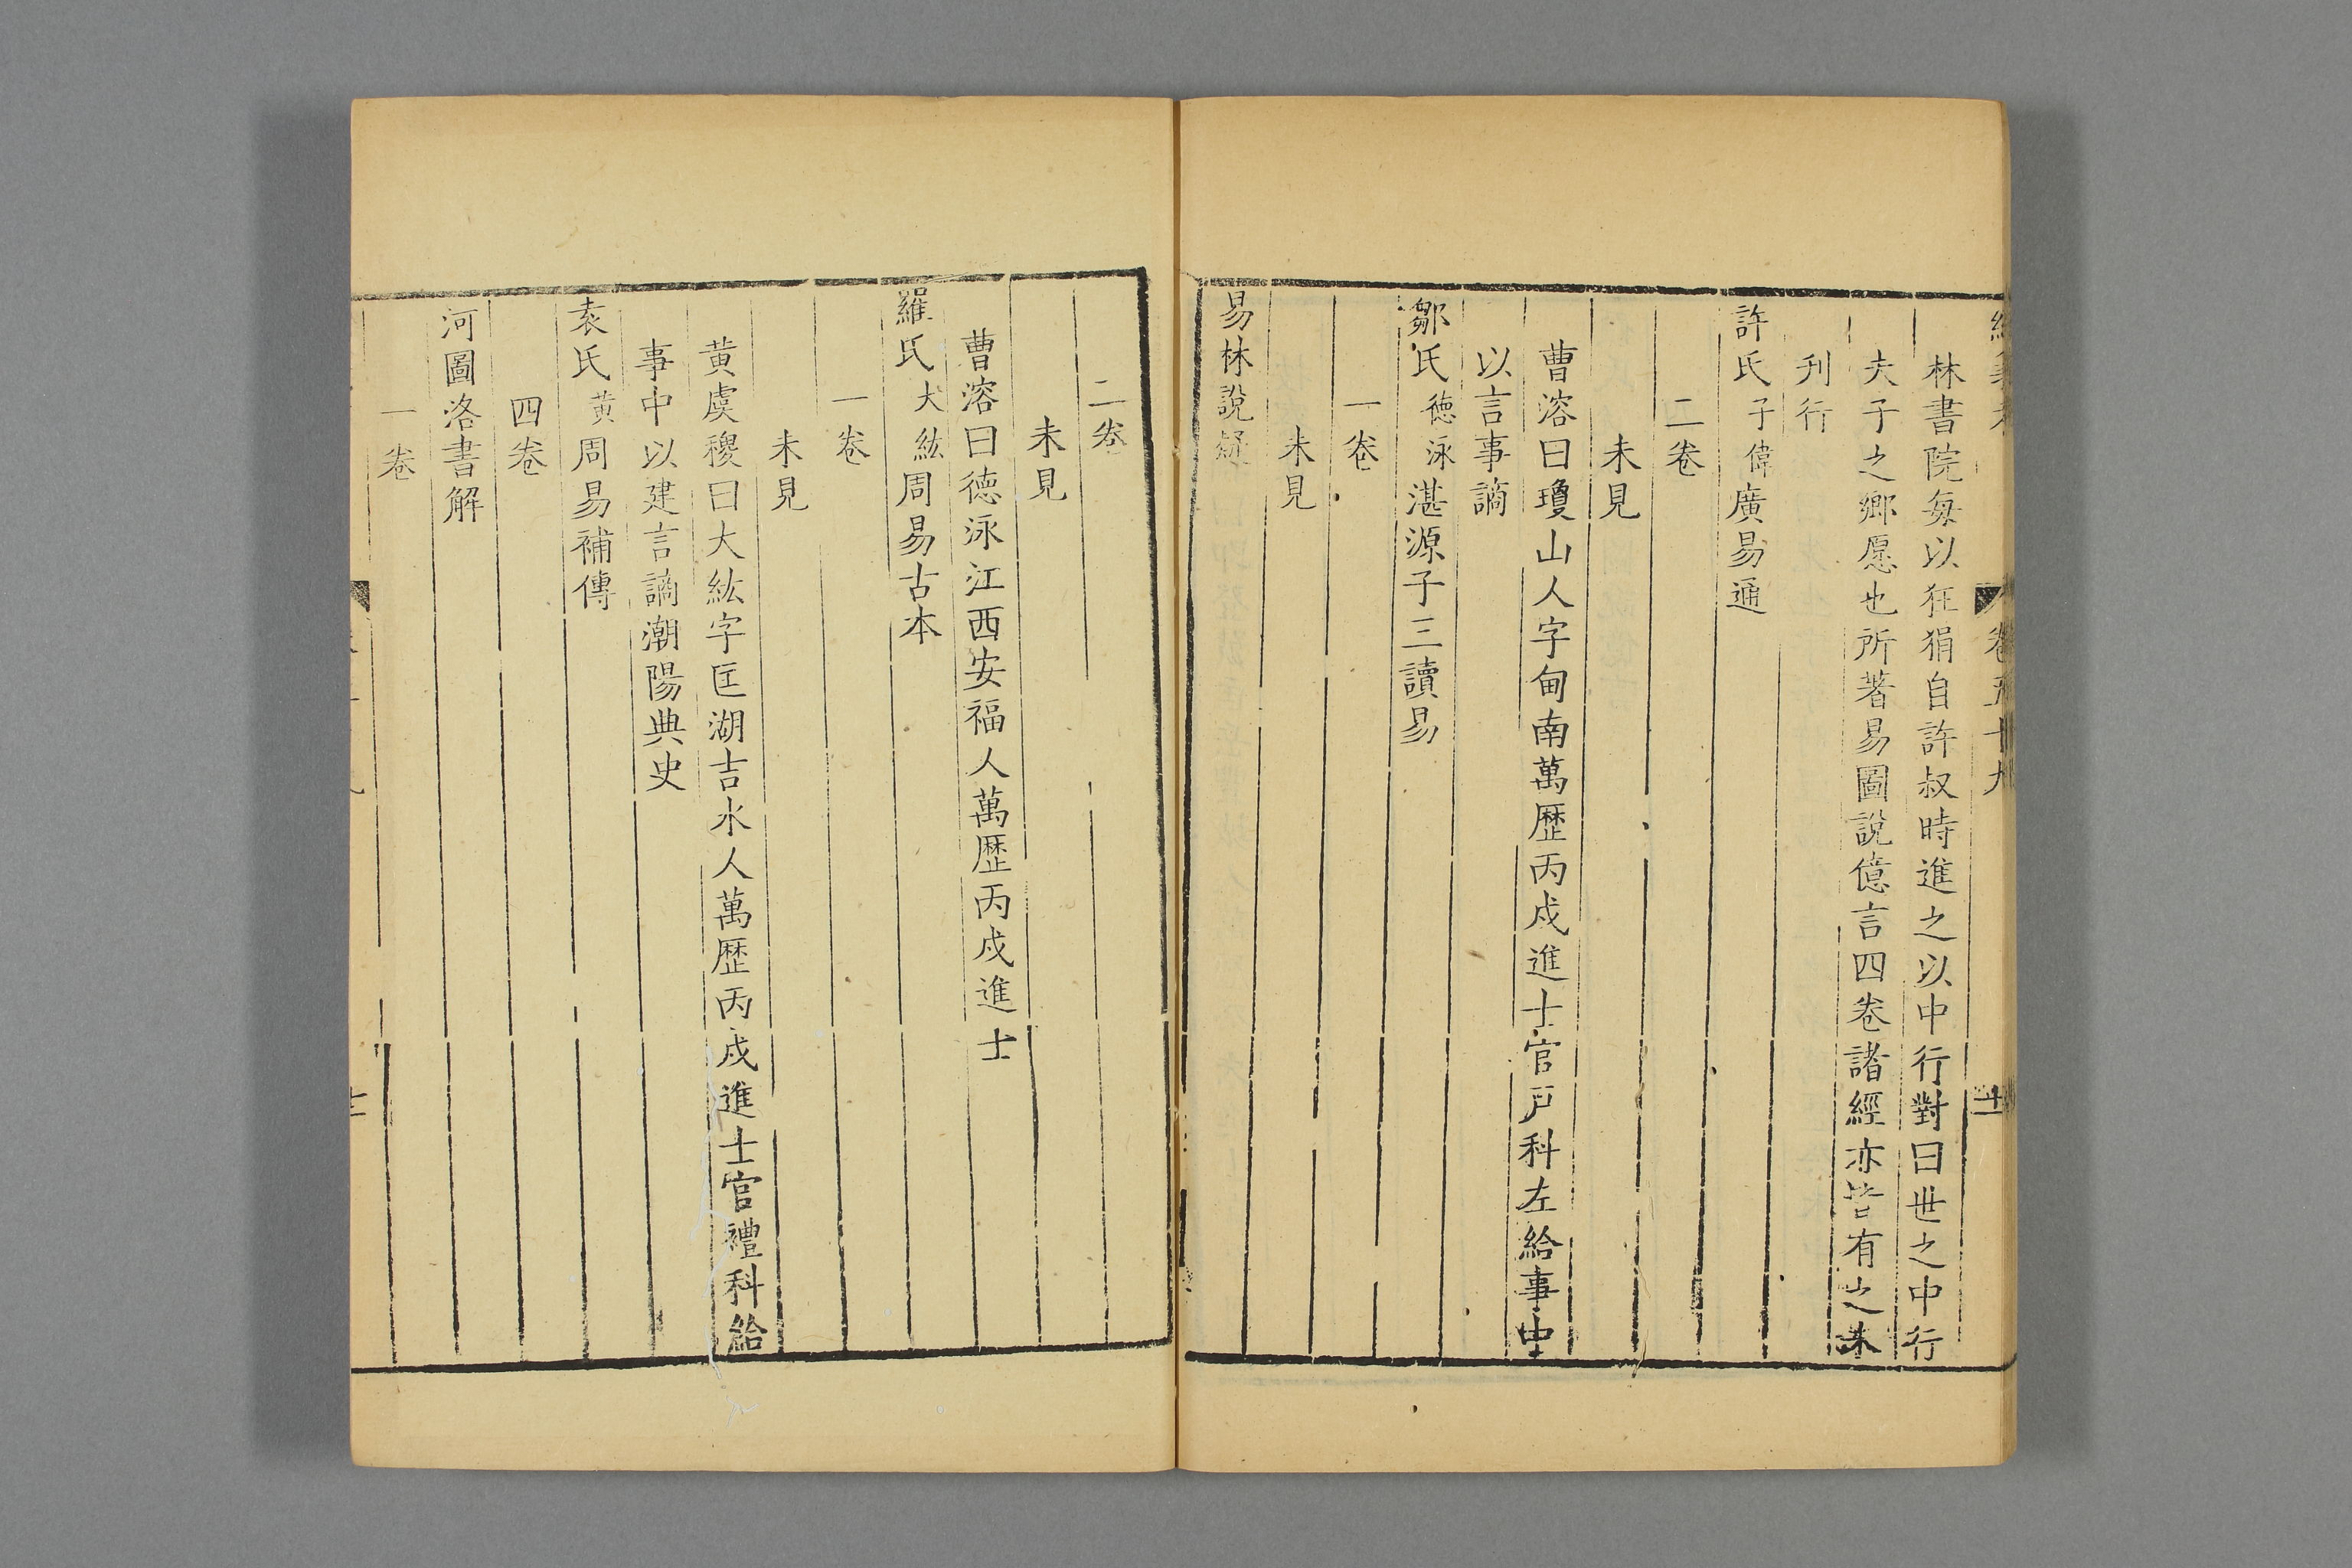 卷五十九
林書院每以狂狷自許叔時進之以中行對曰世之中行
夫子之鄉愿也所著易圖說億言四卷諸經亦皆有之未
刋行
許氏子偉廣易通
二卷
未見
曹溶曰瓊山人字甸南萬歴丙戍進士官戸科左給事中
以言事謫
鄒氏德泳湛源子三讀易
一卷
未見
易林說疑
二卷
未見
曹溶曰德泳江西安福人萬歴丙戍進士
羅氏大紘周易古本
一卷
未見
黃虞稷曰大紘字匡湖吉水人萬歴丙戍進士官禮科給
事中以建言謫潮陽典史
袁氏黃周易補傳
四卷
河圖洛書解
一卷